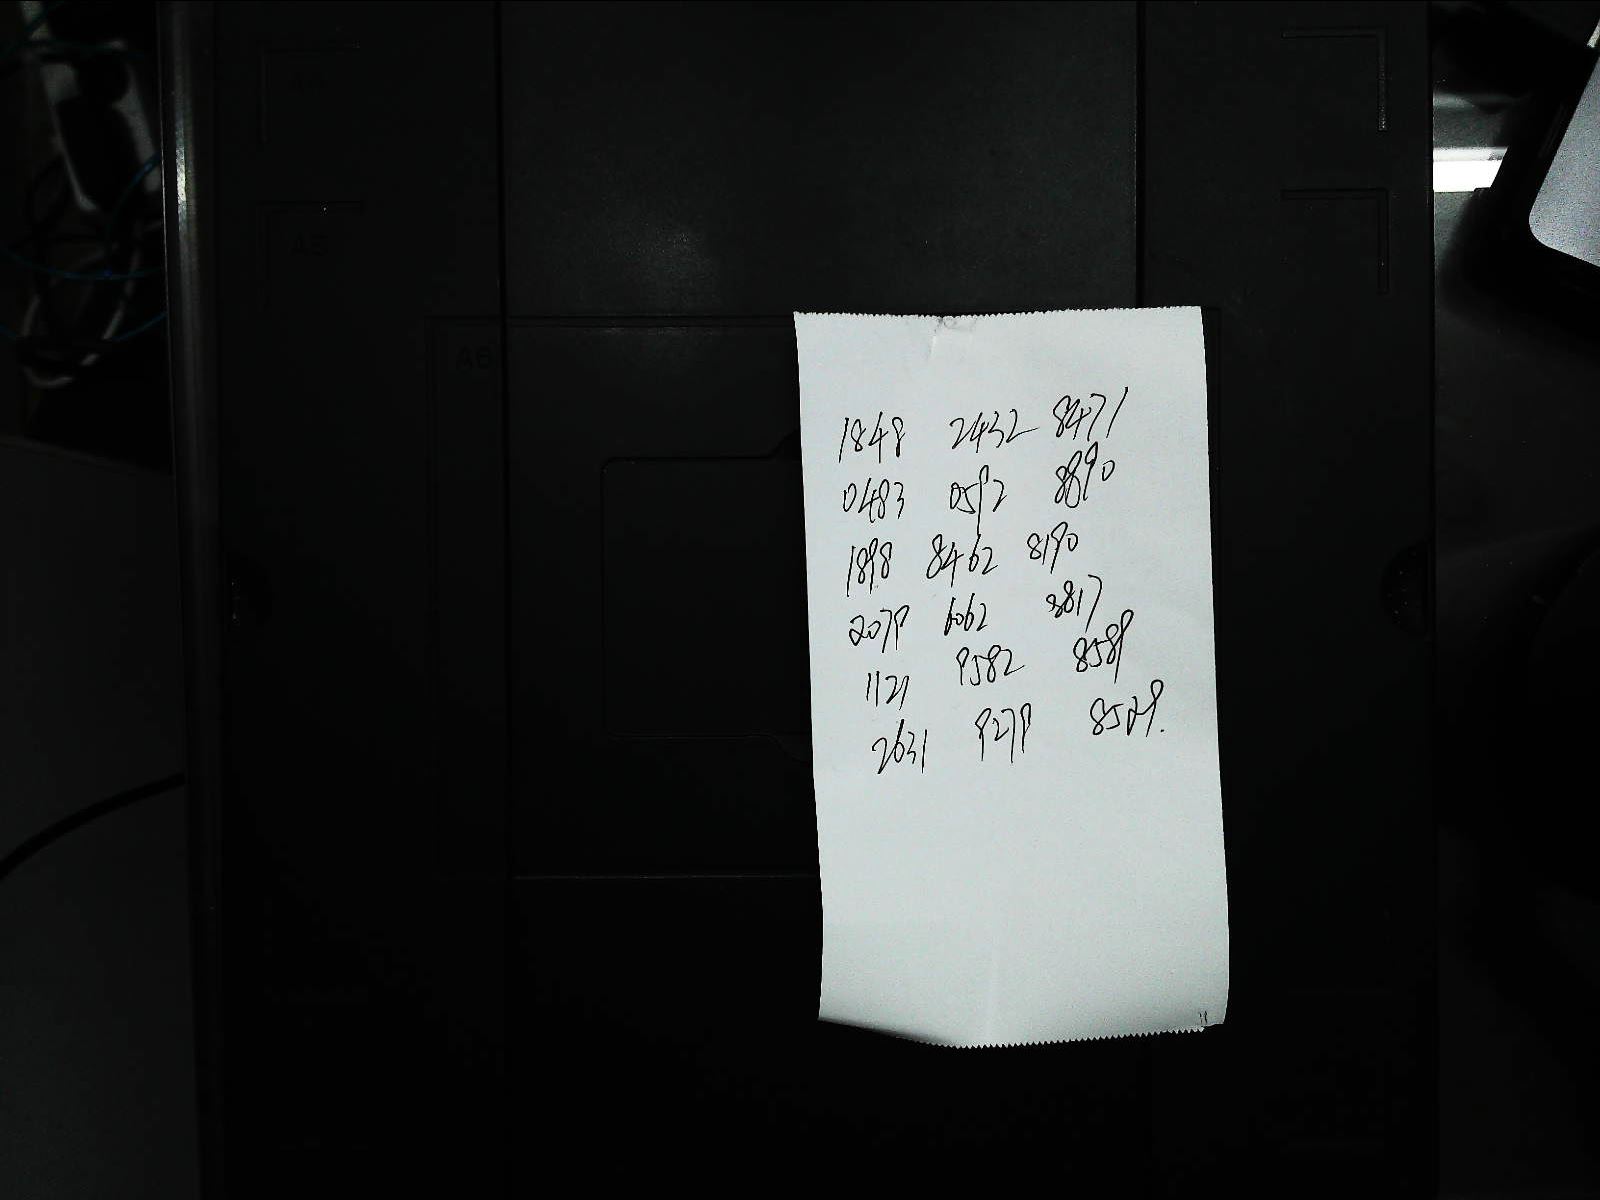 1848 2432 8471
0483 0592 8890
1898 8462 8190
2079 6062 8817
1121 9582 8589
2631 9279 8529.
A5
A6